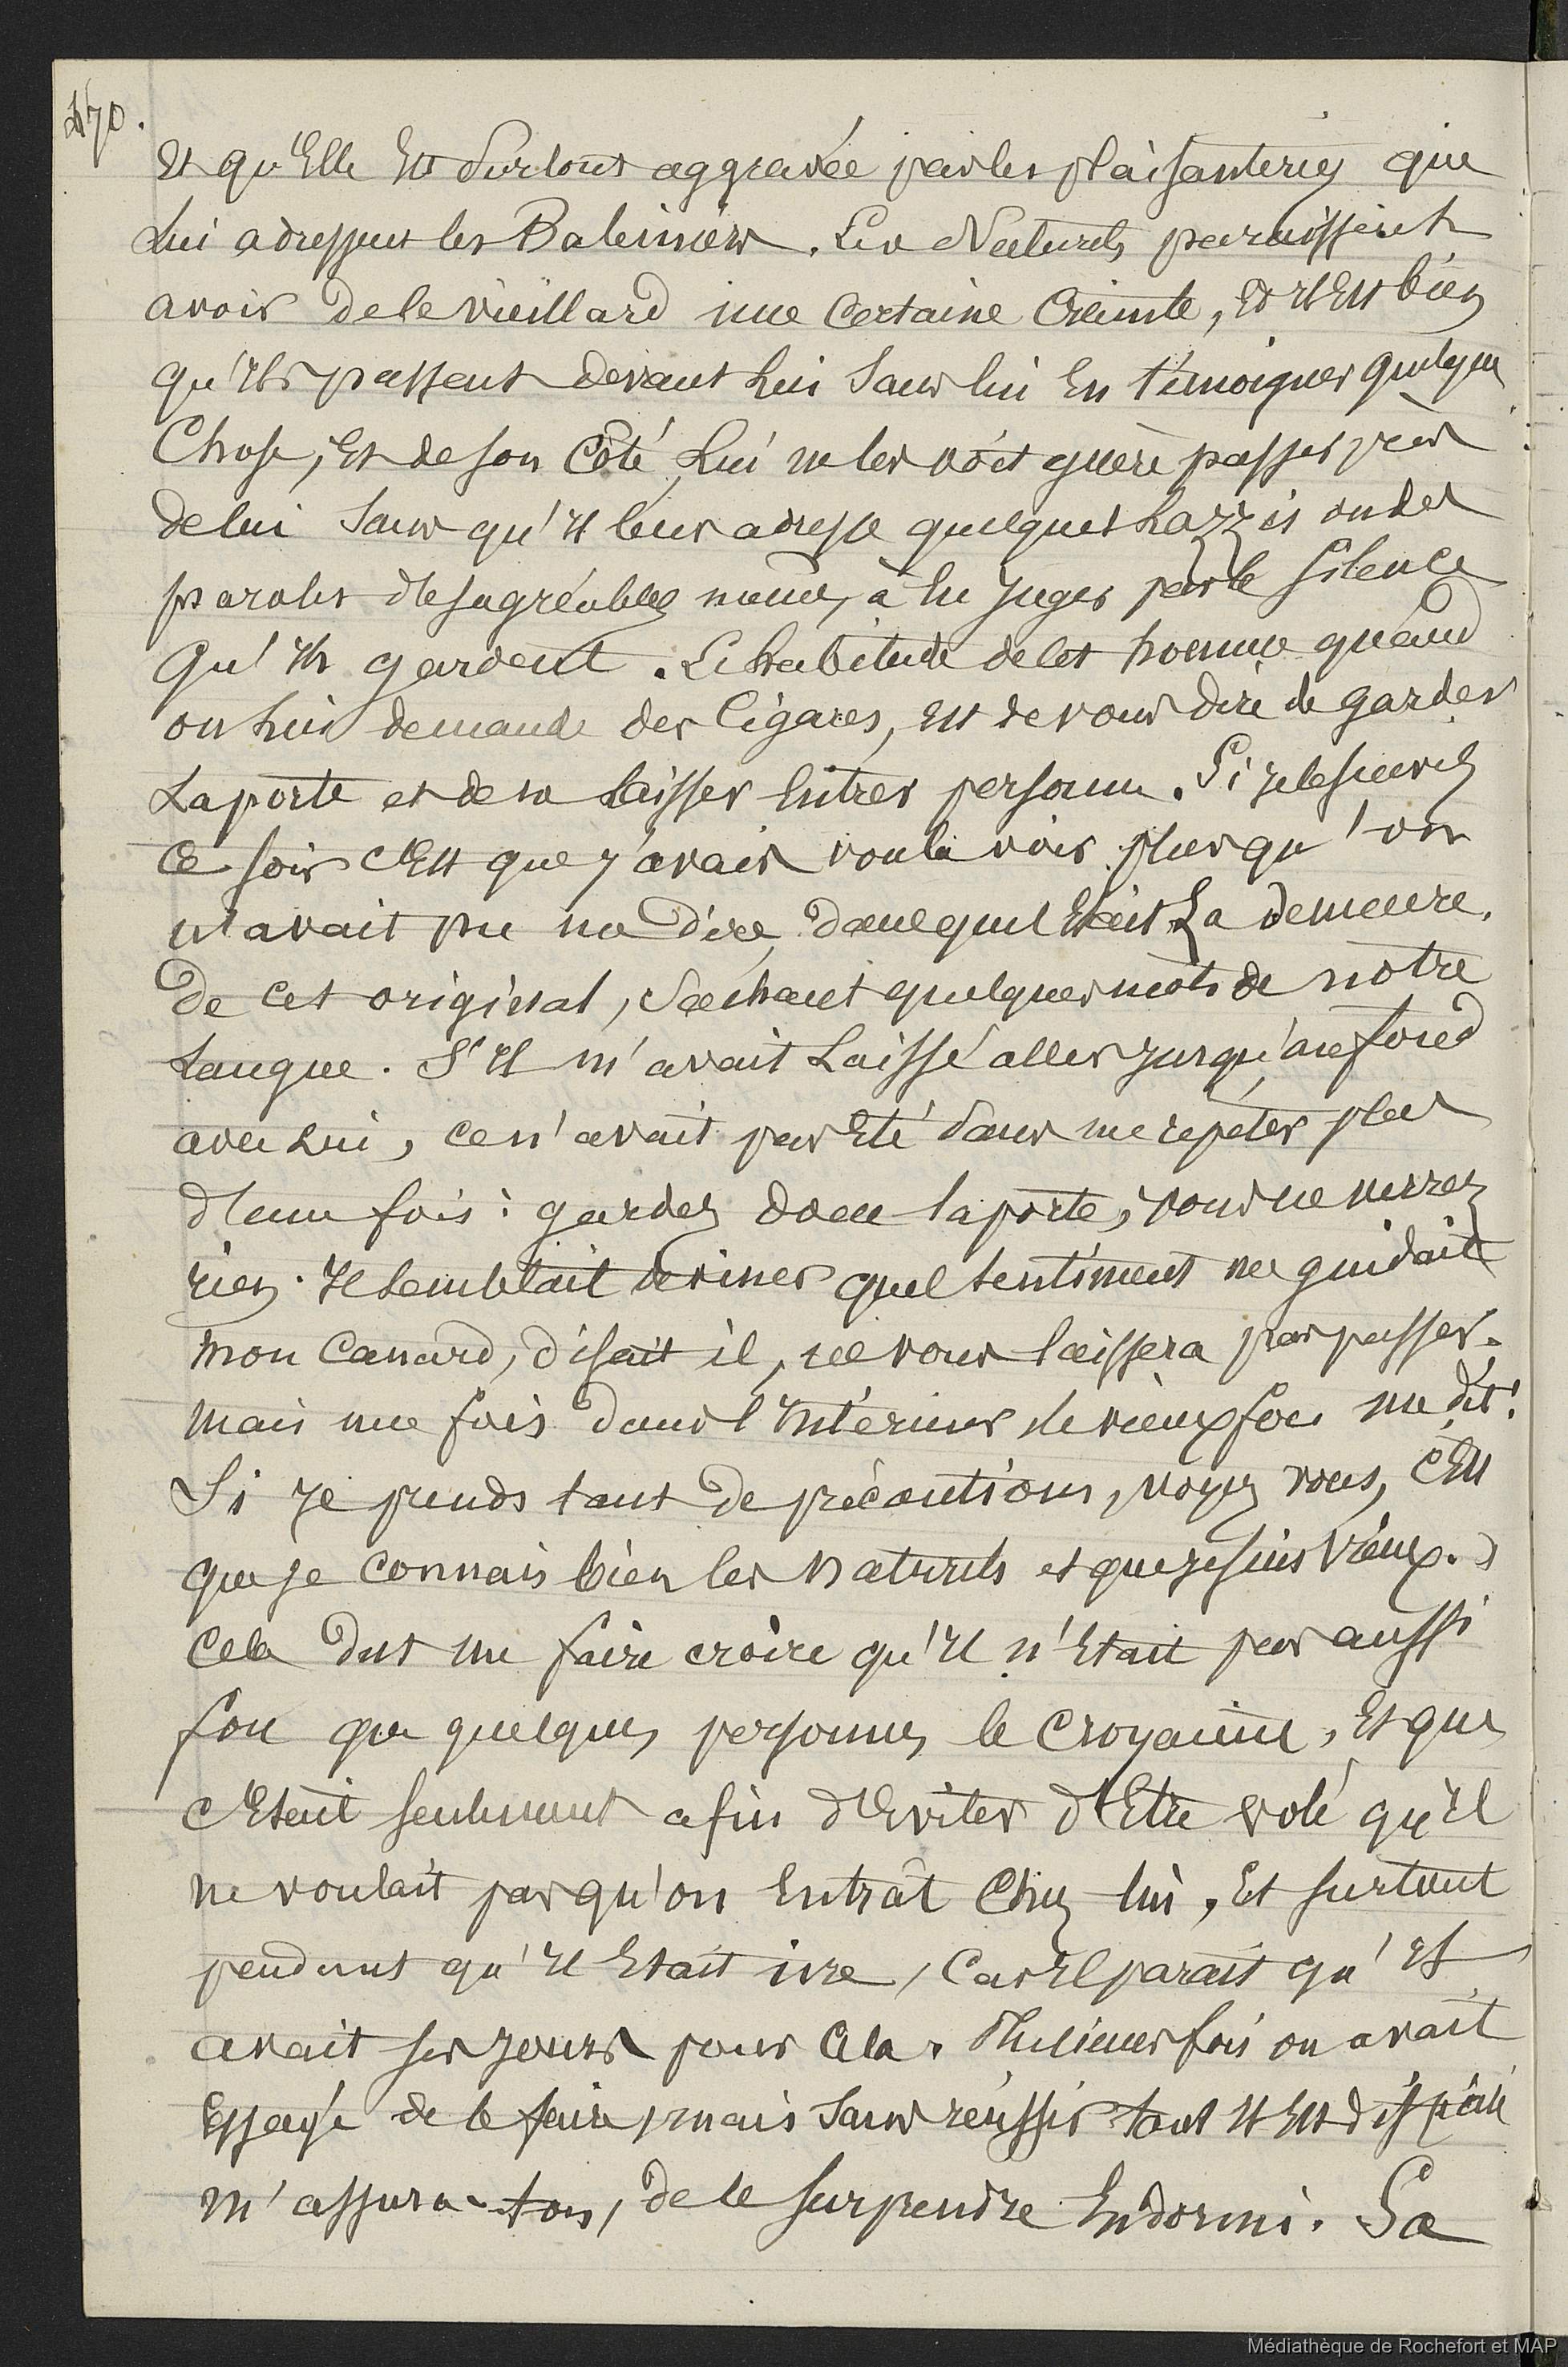 170.
Et qu'Elle Est Surtout aggravée par les plaisanteries que
Lui adressent les Baleiniers. Les Naturels paraissent
avoir de le vieillard une Certaine Crainte, Et Il Est bien
qu'Ils passent devant Lui Sans lui En témoigner quelque
Chose, Et de son Côté, Lui ne les voit guère passer près
de lui Sans qu'Il leur adresse quelques Lazzis ou des
paroles désagréables même, à En Juger par le Silence
Qu'Ils gardent. L'habitude de cet homme quand
on Lui demande des Cigares, Est de vous dire de garder
La porte et de ne laisser Entrer personne. Si je le suivis
Ce soir C'Est que j'avais voulu voir plus qu'on
n'avait pu me dire, dans quel Etait La demeure,
De cet original, Sachant quelques mots de notre
Langue. S'Il m'avait Laissé aller Jusqu'au fond
avec Lui, ce n'avait pas Eté Sans me répéter plus
d'une fois : gardez donc la porte, vous ne verrez
rien. Il semblait deviner quel sentiment me guidait
mon Canard, disait il, ne vous laissera pas passer.
mais une fois dans l'Intérieur le vieux fou me dit :
Si Je prends tant de précautions, voyez vous, C'Est
que je connais bien les naturels et que je suis Vieux.
Cela dut me faire croire qu'Il n'Etait pas aussi
fou que quelques personnes le Croyaient, Et que
C'Etait seulement afin d'Eviter d'Etre volé qu'il
ne voulait pas qu'on Entrât Chez lui, Et surtout
pendant qu'Il Etait ivre, Car Il parait qu'Il
avait ses Jours pour Cela. Plusieurs fois on avait
Essayé de le faire, mais Sans réussir tant Il Est difficile
m'assura-ton, de le surprendre Endormi. Sa
Médiathèque de Rochefort et MAP